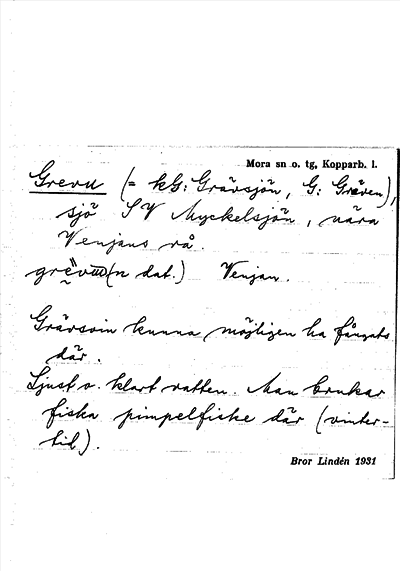 Mora sn o. tg, Kopparb. l.
Grevu (= kG: Grävsjön, G: Gräven),
sjö SV Myckelsjön, nära
Venjans rå.
(n dat.) Venjan.
Grävsvin kunna möjligen ha fångats
där.
Ljust o. klart vatten. Man brukar
fiska pimpelfiske där (vinter-
tid).
Bror Lindén 1931